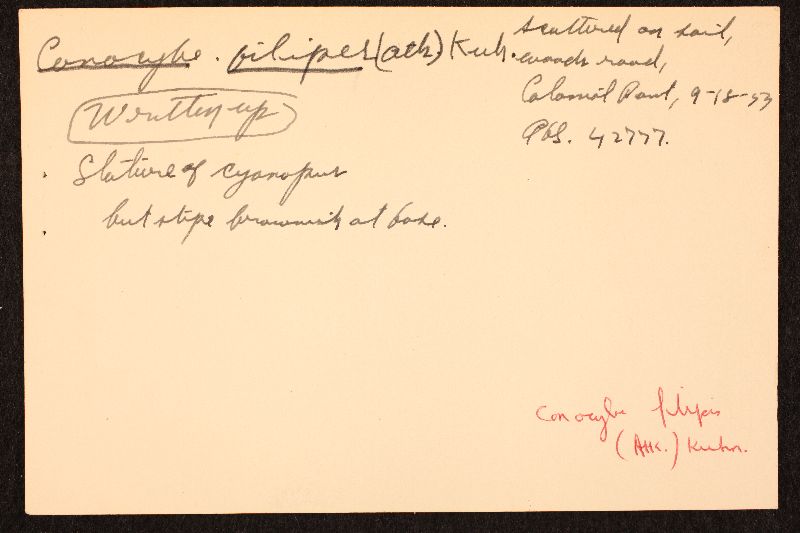 Conocybe. filipes (Atk.) Kuh.
scattered on soil,
woods road,
Colonial Point, 9-18-53
AHS. 42777.
Written up
Stature of cyanopus
but stipe brownish at base.
Conocybe filipes
(Atk.) Kuhn.